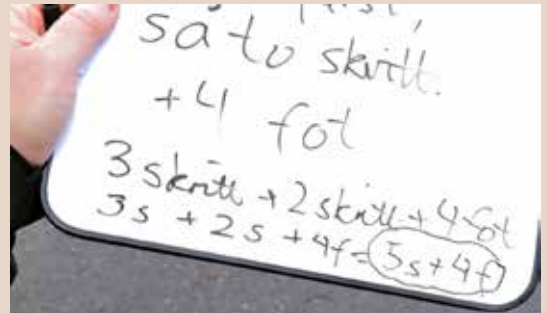 så to skritt.
+4 fot
3 skritt + 2 skritt + 4 fot
3s + 2s + 4f = 5s+4f